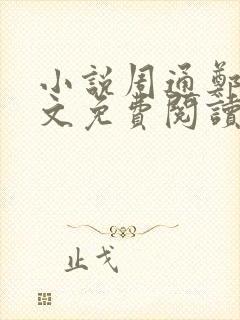 小説周通鄭
文免費閱讀
止戈